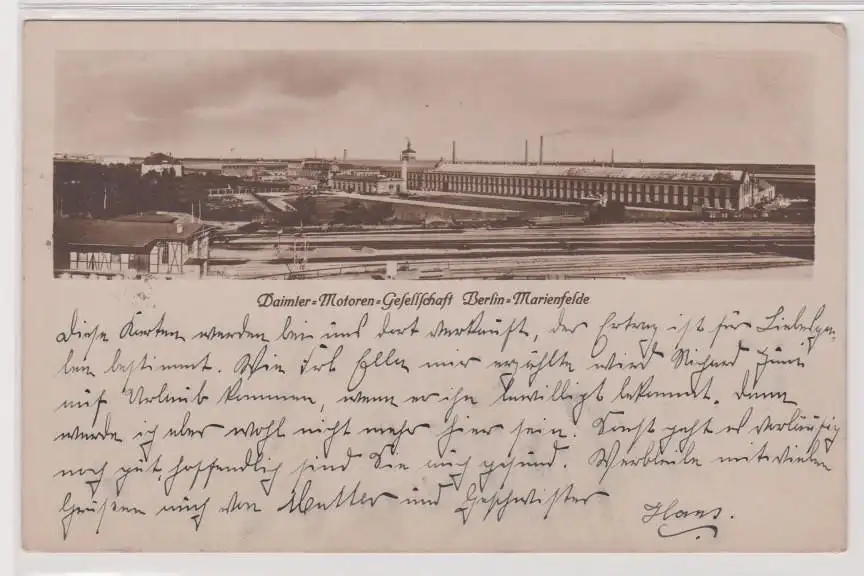 Daimler=Motoren=Gesellschaft Berlin=Marienfelde
Diese Karten werden bei uns dort verkauft, der Ertrag ist für Liebesga-
ben bestimmt. Wie Frl. Ella mir erzählte wird Richard Juni
auf Urlaub kommen, wenn er ihn bewilligt bekommt. Dann
werde ich aber wohl nicht mehr hier sein. Sonst geht es vorläufig
noch gut, hoffendlich sind Sie auch gesund. Verbleibe mit vielen
Grüßen auch von Mutter und Geschwister
Hans.